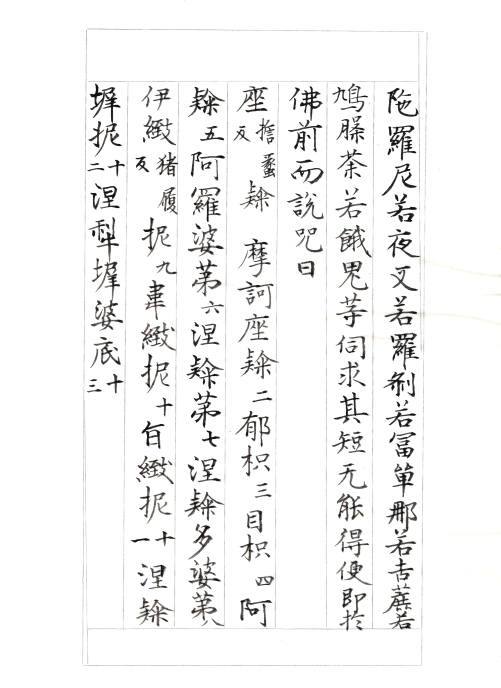 陁羅尼若夜叉若羅剎若冨單那若吉蔗若
鳩䑏荼若餓鬼䓁伺求其短无能得便即扵
佛前而說咒曰
座誓螺反隸 摩訶座隸二郁枳三目枳四阿
隸五阿羅婆第六涅隸第七涅隸多婆第八
伊緻猪履反抳九韋緻抳十旨緻抳十一涅隸
墀抳十二涅犁墀婆底十三